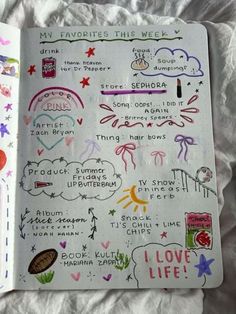 MY FAVORITES THIS WEEK
drink
thank heaven
for Dr Pepper
food
soup
dumplings!
Store: SEPHORA
COLOR
PINK
Song: OOPS!... I DID IT
AGAIN
-Britney Spears
Artist:
Zach Bryan
Thing: hair bows
Product: Summer
Fridays
LIP BUTTER BALM
TV Show
phineas
Ferb
Album:
stick season
(forever)
-NOAH KAHAN
Snack:
TJ'S CHILI + LIME
CHIPS
BOOK: KULTI
-MARIANA ZAPATA
I LOVE
LIFE!